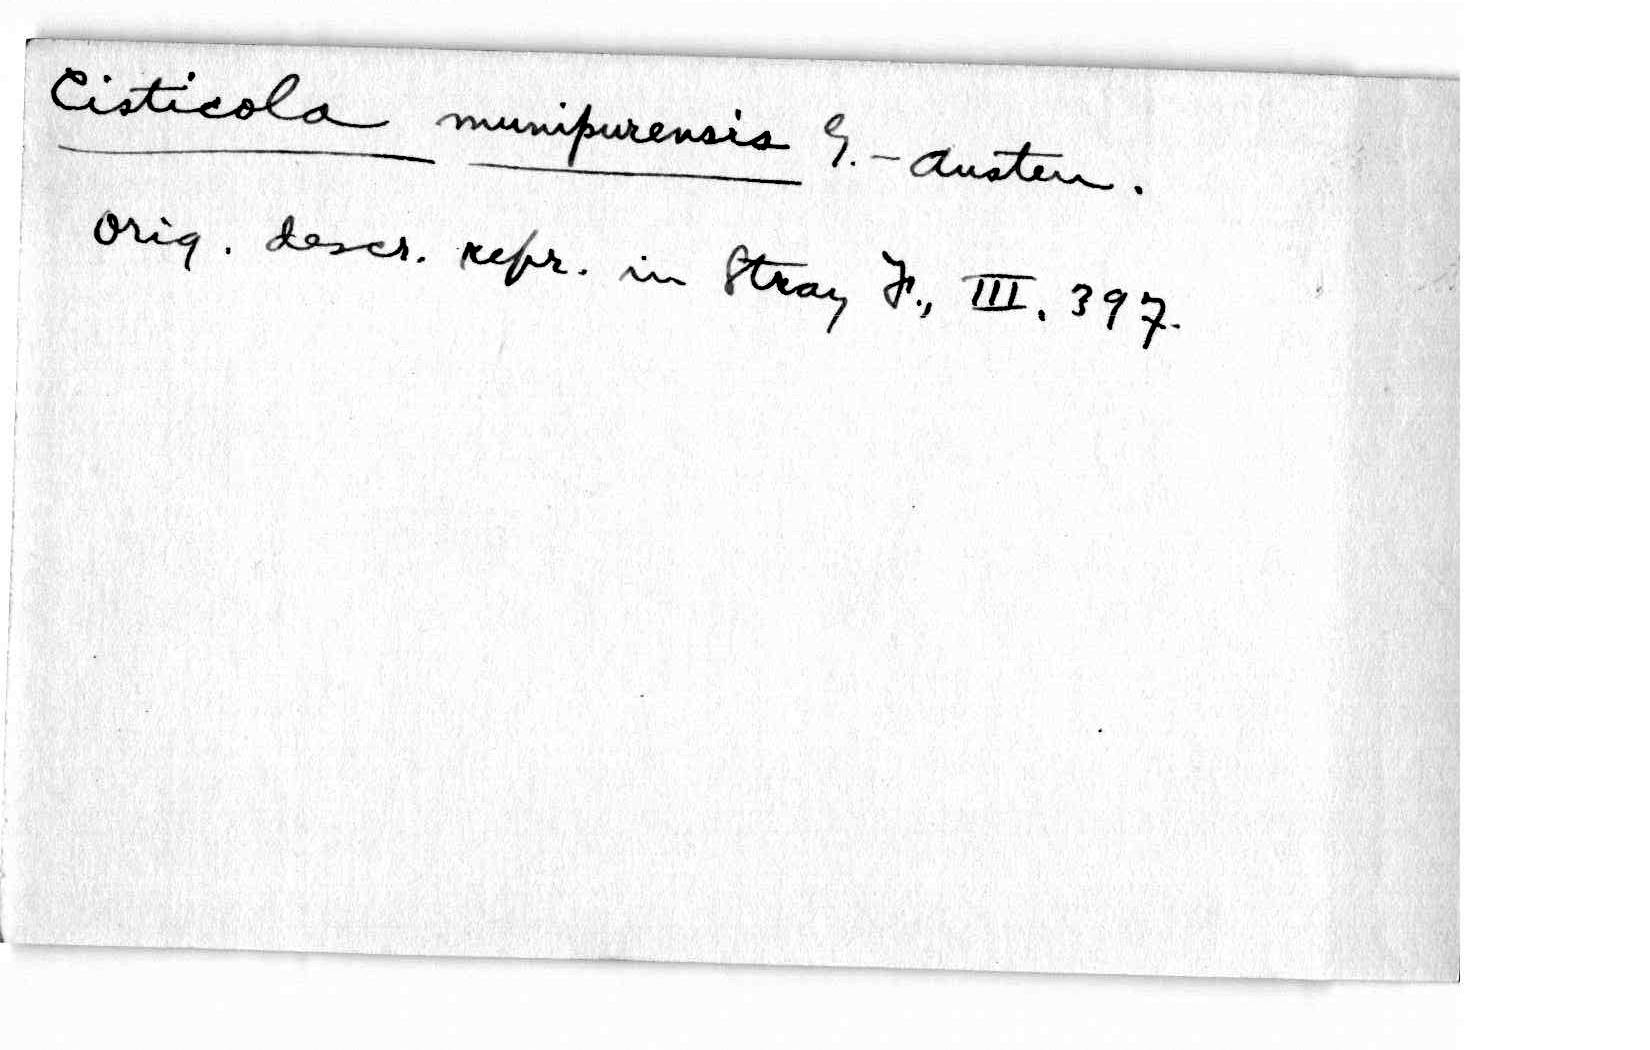 Cisticola munipurensis G.-Austen.
Orig. descr. repr. in Stray F., III. 397.